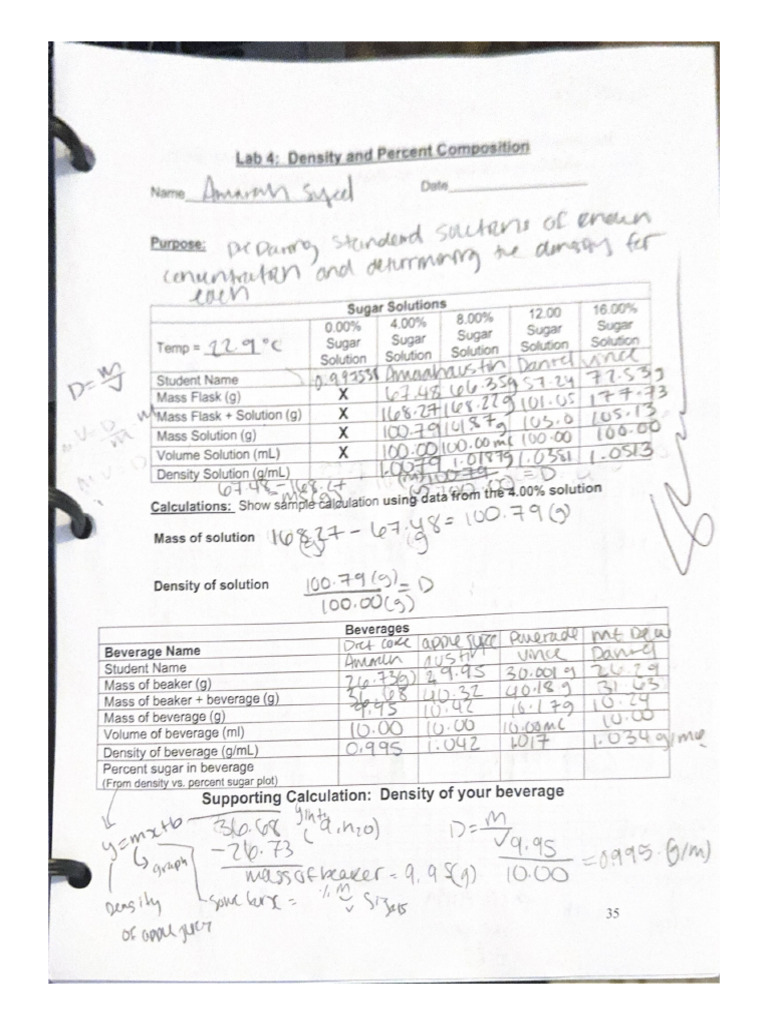 Lab 4: Density and Percent Composition
Name Amarah Syed Date
Purpose: Preparing standard solutions of known
concentration and determining the density for
each
Sugar Solutions
Temp = 22.9°C 0.00% Sugar Solution 4.00% Sugar Solution 8.00% Sugar Solution 12.00 Sugar Solution 16.00% Sugar Solution
D = m/V
Student Name 0.997538 Amarah austin Daniel vince
Mass Flask (g) X 67.48 66.35g 57.24 72.53g
Mass Flask + Solution (g) X 168.27 168.22g 101.05 177.73
Mass Solution (g) X 100.79 101.87g 103.0 105.13
Volume Solution (mL) X 100.00 100.00 mL 100.00 100.00
Density Solution (g/mL) 1.0079 1.01879 1.0381 1.0513
67.48 - 168.27
= D
Calculations: Show sample calculation using data from the 4.00% solution
Mass of solution 168.27 - 67.48 = 100.79 (g)
(g) (g)
Density of solution 100.79 (g) / 100.00 (g) = D
Beverages
Beverage Name Diet coke apple juice Powerade mt Dew
Student Name Amarah austin vince Daniel
Mass of beaker (g) 26.73g) 29.95 30.001g 26.29
Mass of beaker + beverage (g) 36.68 40.32 40.18g 31.63
Mass of beverage (g) 9.95 10.42 10.24
Volume of beverage (ml) 10.00 10.00 10.00mL 10.00
Density of beverage (g/mL) 0.995 1.042 1.017 1.034 g/mL
Percent sugar in beverage
(From density vs. percent sugar plot)
Supporting Calculation: Density of your beverage
y=mx+b
graph
Density
of apple juice
36.68
-26.73
mass of beaker = 9.95(g)
D = M/V
9.95 / 10.00 = 0.995 (g/m)
35